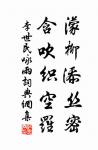 濛柳添丝密
含吹织空罗
李世民咏雨词典网集